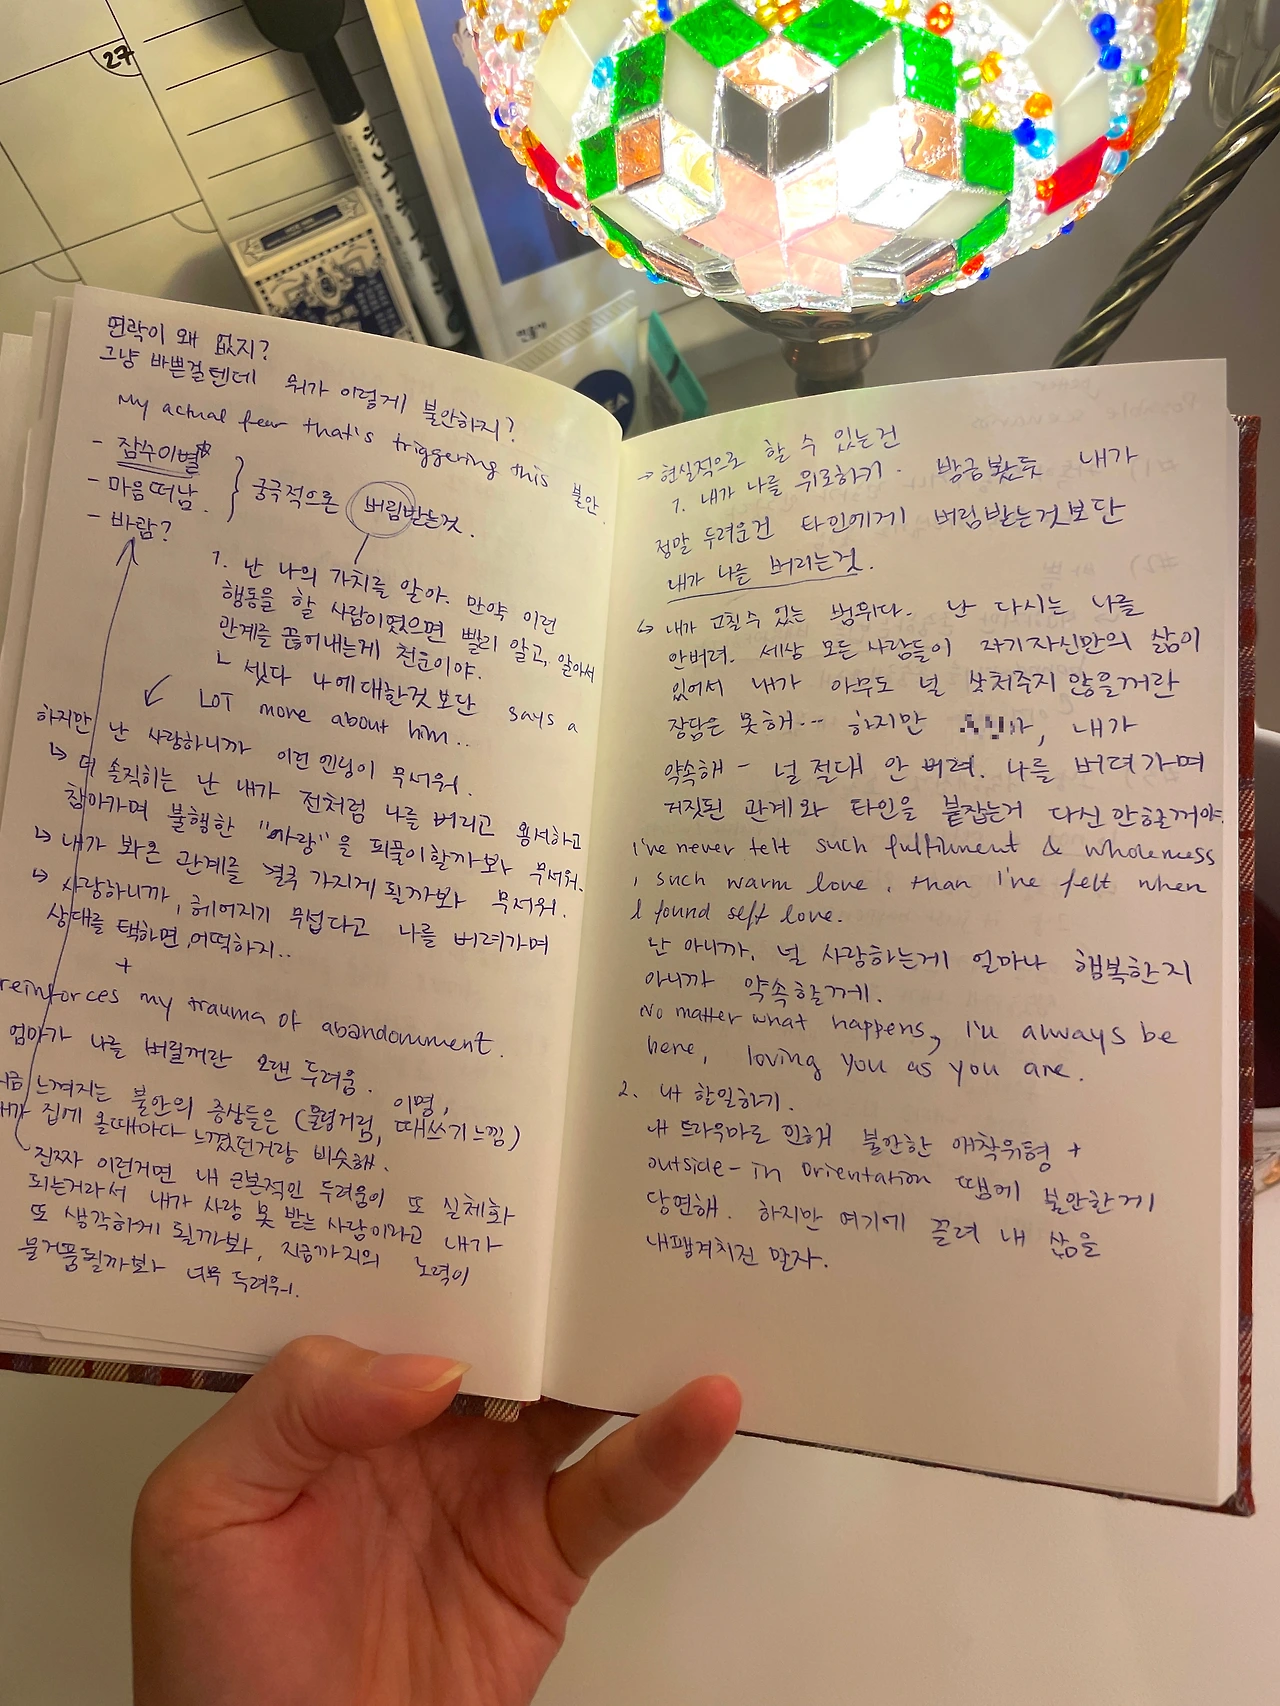 27
ホワイトボードマーカー
연락이 왜 없지?
그냥 바쁜걸텐데 뭐가 이렇게 불안하지?
My actual fear that's triggering this 불안.
- 잠수이별
- 마음떠남.
- 바람?
궁극적으론 버림받는것.
1. 난 나의 가치를 알아. 만약 이런
행동을 할 사람이였으면 빨리 알고, 알아서
관계를 끊어내는게 천운이야.
↳ 셌다 나에대한것 보단 says a
LOT more about him..
하지만 난 사랑하니까 이런 엔딩이 무서워.
↳ 더 솔직히는 난 내가 전처럼 나를 버리고 용서하고
참아가며 불행한 "사랑"을 되풀이할까봐 무서워.
↳ 내가 봐온 관계를 결국 가지게 될까봐 무서워.
↳ 사랑하니까, 헤어지기 무섭다고 나를 버려가며
상대를 택하면, 어떡하지..
+
reinforces my trauma of abandonment.
엄마가 나를 버릴꺼란 오랜 두려움.
느껴지는 불안의 증상들은 (울렁거림, 이명, 떼쓰기느낌)
집에 올때마다 느꼈던거랑 비슷해.
진짜 이런거면 내 근본적인 두려움이 또 실체화
되는거라서 내가 사랑 못 받는 사람이라고 내가
또 생각하게 될까봐, 지금까지의 노력이
물거품될까봐 너무 두려워.
→ 현실적으로 할 수 있는건
1. 내가 나를 위로하기. 방금봤듯 내가
정말 두려운건 타인에게 버림받는것보단
내가 나를 버리는것.
↳ 내가 고칠수 있는 범위다. 난 다시는 나를
안버려. 세상 모든 사람들이 자기자신만의 삶이
있어서 내가 아무도 널 상처주지 않을꺼란
장담은 못해... 하지만 아, 내가
약속해 - 널 절대 안 버려. 나를 버려가며
거짓된 관계와 타인을 붙잡는거 다신 안할꺼야.
I've never felt such fulfillment & wholeness
, such warm love, than I've felt when
I found self love.
난 아니까. 널 사랑하는게 얼마나 행복한지
아니까 약속할게.
No matter what happens, I'll always be
here, loving you as you are.
2. 내 할일하기.
내 트라우마로 인해 불안한 애착유형 +
outside-in orientation 땜에 불안한게
당연해. 하지만 여기에 끌려 내 삶을
내팽겨치진 말자.